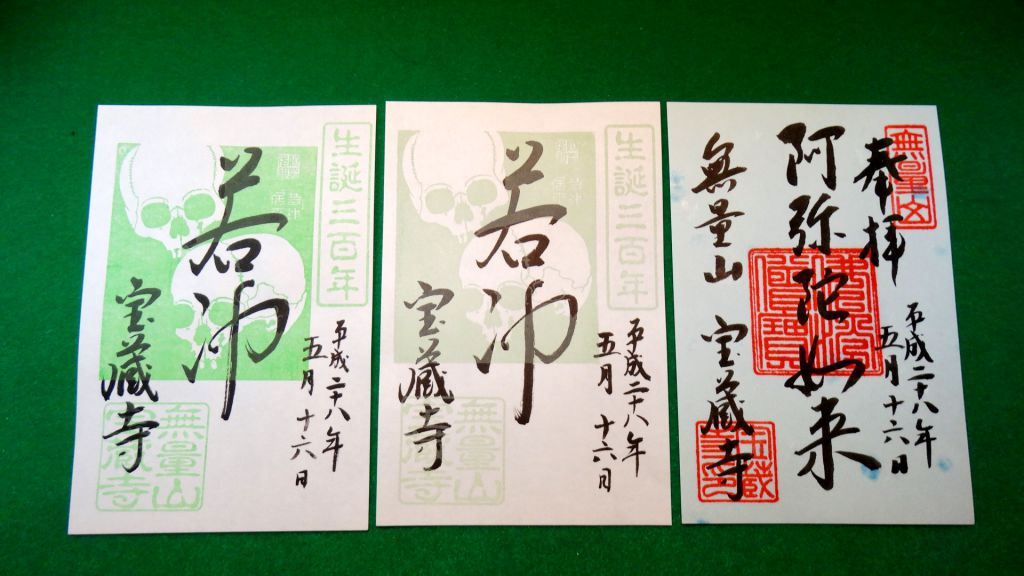 生誕三百年
若冲
平成二十八年
五月十六日
宝蔵寺
無量山
宝蔵寺
生誕三百年
若冲
平成二十八年
五月十六日
宝蔵寺
無量山
宝蔵寺
奉拝
平成二十八年
五月十六日
阿弥陀如来
無量山 宝蔵寺